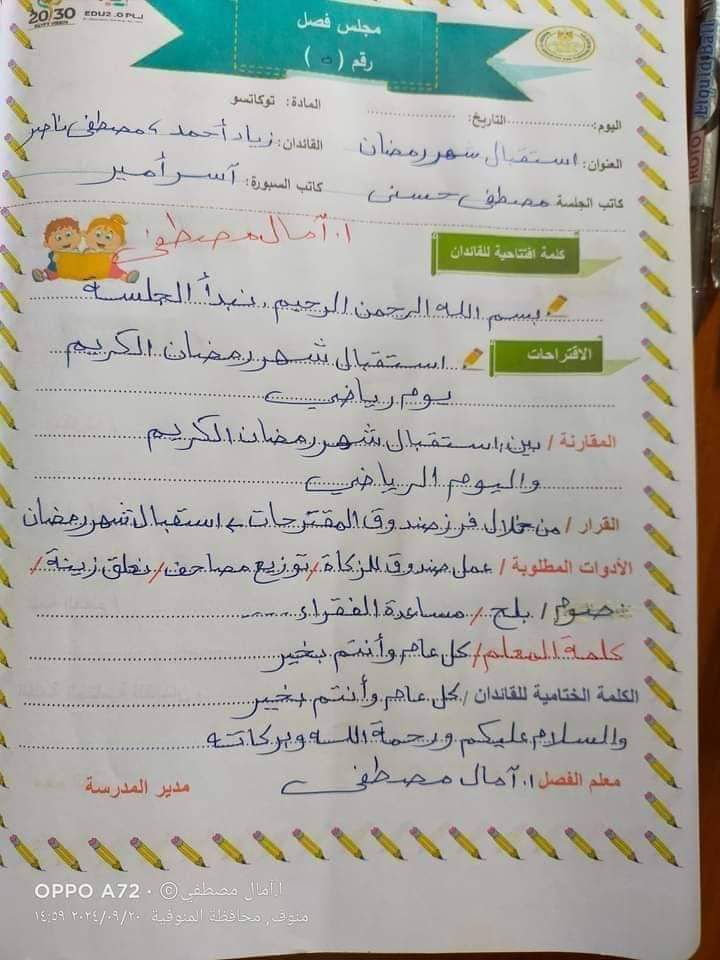 2030
EGYPT VISION
EDU2.0
مجلس فصل
رقم (٥)
Liquid Ball
ROTO
اليوم: التاريخ: المادة: توكاتسو
العنوان: استقبال شهر رمضان القائدان: زياد أحمد، مصطفى ناصر
كاتب الجلسة مصطفى حسنى كاتب السبورة: آسر أمير
أ. آمال مصطفى
كلمة افتتاحية للقائدان
بسم الله الرحمن الرحيم. نبدأ الجلسة
الاقتراحات استقبال شهر رمضان الكريم
يوم رياضي
المقارنة / بين استقبال شهر رمضان الكريم
واليوم الرياضي
القرار / من خلال فرز صندوق المقترحات > استقبال شهر رمضان
الأدوات المطلوبة / عمل صندوق للزكاة / توزيع مصاحف / نعلق زينة /
نصوم / بلح / مساعدة الفقراء
كلمة المعلم / كل عام وأنتم بخير
الكلمة الختامية للقائدان / كل عام وأنتم بخير
والسلام عليكم ورحمة الله وبركاته
معلم الفصل أ. آمال مصطفى مدير المدرسة
OPPO A72 · © ا.امال مصطفي
منوف, محافظة المنوفية ٢٠٢٤/٠٩/٢٠ ١٤:٥٩